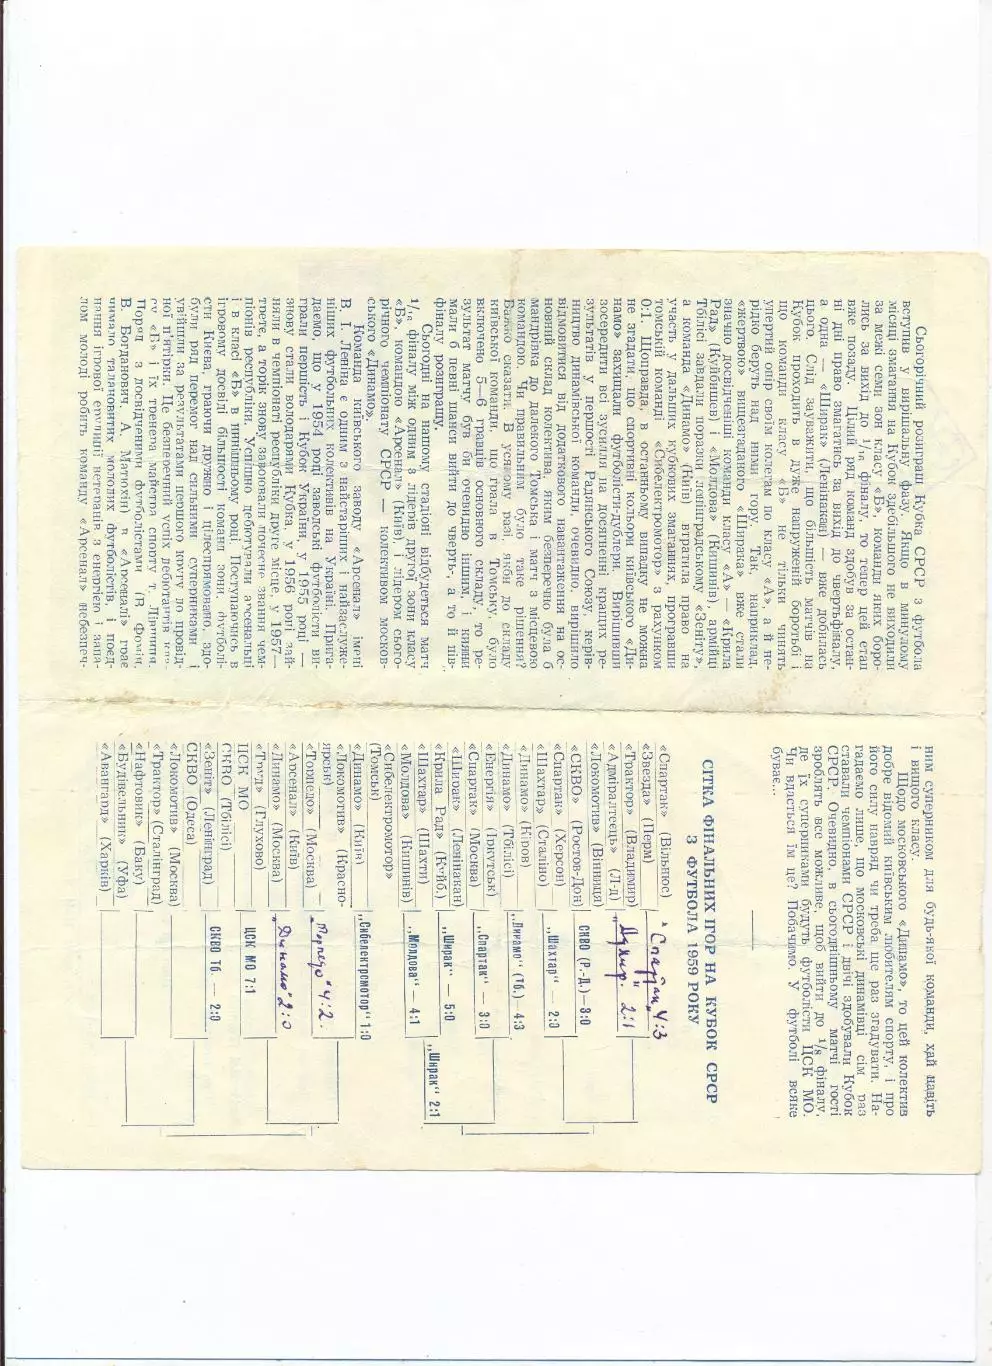 Сьогорічний розиграш Кубка СРСР з футбола
вступив у вирішальну фазу. Якщо в минулому
місяці змагання на Кубок здебільшого не виходили
за межі семи зон класу «Б», команди яких боро-
лись за вихід до 1/16 фіналу, то тепер цей етап
вже позаду. Цілий ряд команд здобув за остан-
ні дні право змагатись за вихід до чвертьфіналу,
а одна — «Ширак» (Ленінакан) — вже добилась
цього. Слід зауважити, що більшість матчів на
Кубок проходить в дуже напруженій боротьбі і
що команди класу «Б» не тільки чинять
упертий опір своїм колегам по класу «А», а й не-
рідко беруть над ними гору. Так, наприклад,
«жертвою» вищезгаданого «Ширака» вже стали
значно досвідченіші команди класу «А» — «Крила
Рад» (Куйбишев) і «Молдова» (Кишинів), армійці
Тбілісі завдали поразки ленінградському «Зеніту»,
а команда «Динамо» (Київ) втратила право на
участь у дальших кубкових змаганнях, програвши
томській команді «Сибелектромотор» з рахунком
0:1. Щоправда, в останньому випадку не можна
не згадати, що спортивні кольори київського «Ди-
намо» захищали футболісти-дублери. Вирішивши
зосередити всі зусилля на досягненні кращих ре-
зультатів у першості Радянського Союзу, керів-
ництво динамівської команди, очевидно, вирішило
відмовитися від додаткового навантаження на ос-
новний склад колектива, яким безперечно була б
мандрівка до далекого Томська і матч з місцевою
командою. Чи правильним було таке рішення?
Важко сказати. В усякому разі, якби до складу
київської команди, що грала в Томську, було
включено 5—6 гравців основного складу, то ре-
зультат матчу був би очевидно іншим, і кияни
мали б певні шанси вийти до чверть-, а то й пів-
фіналу розиграшу.
Сьогодні на нашому стадіоні відбудеться матч
1/16 фіналу між одним з лідерів другої зони класу
«Б», командою «Арсенал» (Київ), і лідером сього-
річного чемпіонату СРСР — колективом москов-
ського «Динамо».
Команда київського заводу «Арсенал» імені
В. І. Леніна є одним з найстаріших і найзаслуже-
ніших футбольних колективів на Україні. Прига-
даємо, що у 1954 році заводські футболісти ви-
грали першість і Кубок України, у 1955 році —
знову стали володарями Кубка, у 1956 році зай-
няли в чемпіонаті республіки друге місце, у 1957—
третє, а торік знову завоювали почесне звання чем-
піонів республіки. Успішно дебютували арсенальці
і в класі «Б» в нинішньому році. Поступаючись в
ігровому досвіді більшості команд зони, футболі-
сти Києва, граючи дружно і цілеспрямовано, здо-
були ряд перемог над сильними суперниками і
увійшли за результатами першого круту до провід-
ної п'ятірки. Це безперечний успіх дебютантів кла-
су «Б» і їх тренера майстра спорту г. Лівшиця.
Поряд з досвідченими футболістами (В. Фомін,
В. Богданович, А. Матюхін) в «Арсеналі» грає
чимало талановитих молодих футболістів, і поєд-
нання ігрової ерудиції ветеранів з енергією і запа-
лом молоді робить команду «Арсенал» небезпеч-
ним суперником для будь-якої команди, хай навіть
і вищого класу.
Щодо московського «Динамо», то цей колектив
добре відомий київським любителям спорту, і про
його силу навряд чи треба ще раз згадувати. На-
гадаємо лише, що московські динамівці сім раз
ставали чемпіонами СРСР і двічі здобували Кубок
СРСР. Очевидно, в сьогоднішньому матчі гості
зроблять все можливе, щоб вийти до 1/8 фіналу,
де їх суперниками будуть футболісти ЦСК МО.
Чи вдасться їм це? Побачимо. У футболі всяке
буває...
СІТКА ФІНАЛЬНИХ ІГОР НА КУБОК СРСР
З ФУТБОЛА 1959 РОКУ
«Спартак» (Вільнюс)
«Звезда» (Перм)
"Спартак" 4:3
«Трактор» (Владимир)
«Адміралтеєць» (Л-д)
"Адмир." 2:1
«Локомотив» (Вінниця)
«СКВО» (Ростов-Дон)
СКВО (Р.-Д.)—3:0
«Спартак» (Херсон)
«Шахтар» (Сталіно)
"Шахтар" — 2:0
«Динамо» (Кіров)
«Динамо» (Тбілісі)
"Динамо" (Тб.) 4:3
«Енергія» (Іркутськ)
«Спартак» (Москва)
"Спартак" — 3:0
«Ширак» (Ленінакан)
«Крила Рад» (Куйб.)
"Ширак" — 5:0
«Шахтар» (Шахти)
«Молдова» (Кишинів)
"Молдова" — 4:1
"Ширак" 2:1
«Сибелектромотор»
(Томськ)
«Динамо» (Київ)
"Сибелектромотор" 1:0
«Локомотив» (Красно-
ярськ)
«Торпедо» (Москва)
"Торпедо" 4:2.
«Арсенал» (Київ)
«Динамо» (Москва)
"Динамо" 2:0
«Труд» (Глухово)
ЦСК МО
ЦСК МО 7:1
СКВО (Тбілісі)
«Зеніт» (Ленінград)
СКВО Тб. — 2:0
СКВО (Одеса)
«Локомотив» (Москва)
«Трактор» (Сталінград)
«Нафтовик» (Баку)
«Будівельник» (Уфа)
«Авангард» (Харків)